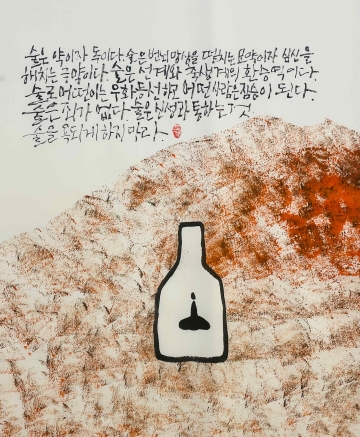 술은 약이자 독이다. 술은 번뇌 망상을 떨치는 묘약이자 심신을
해치는 극약이다. 술은 선계와 축생계의 환승역이다.
술로 어떤이는 우화등선하고 어떤 사람은 짐승이 된다.
술은 죄가 없다. 술은 신성과 통하는 것
술을 욕되게 하지 말라.